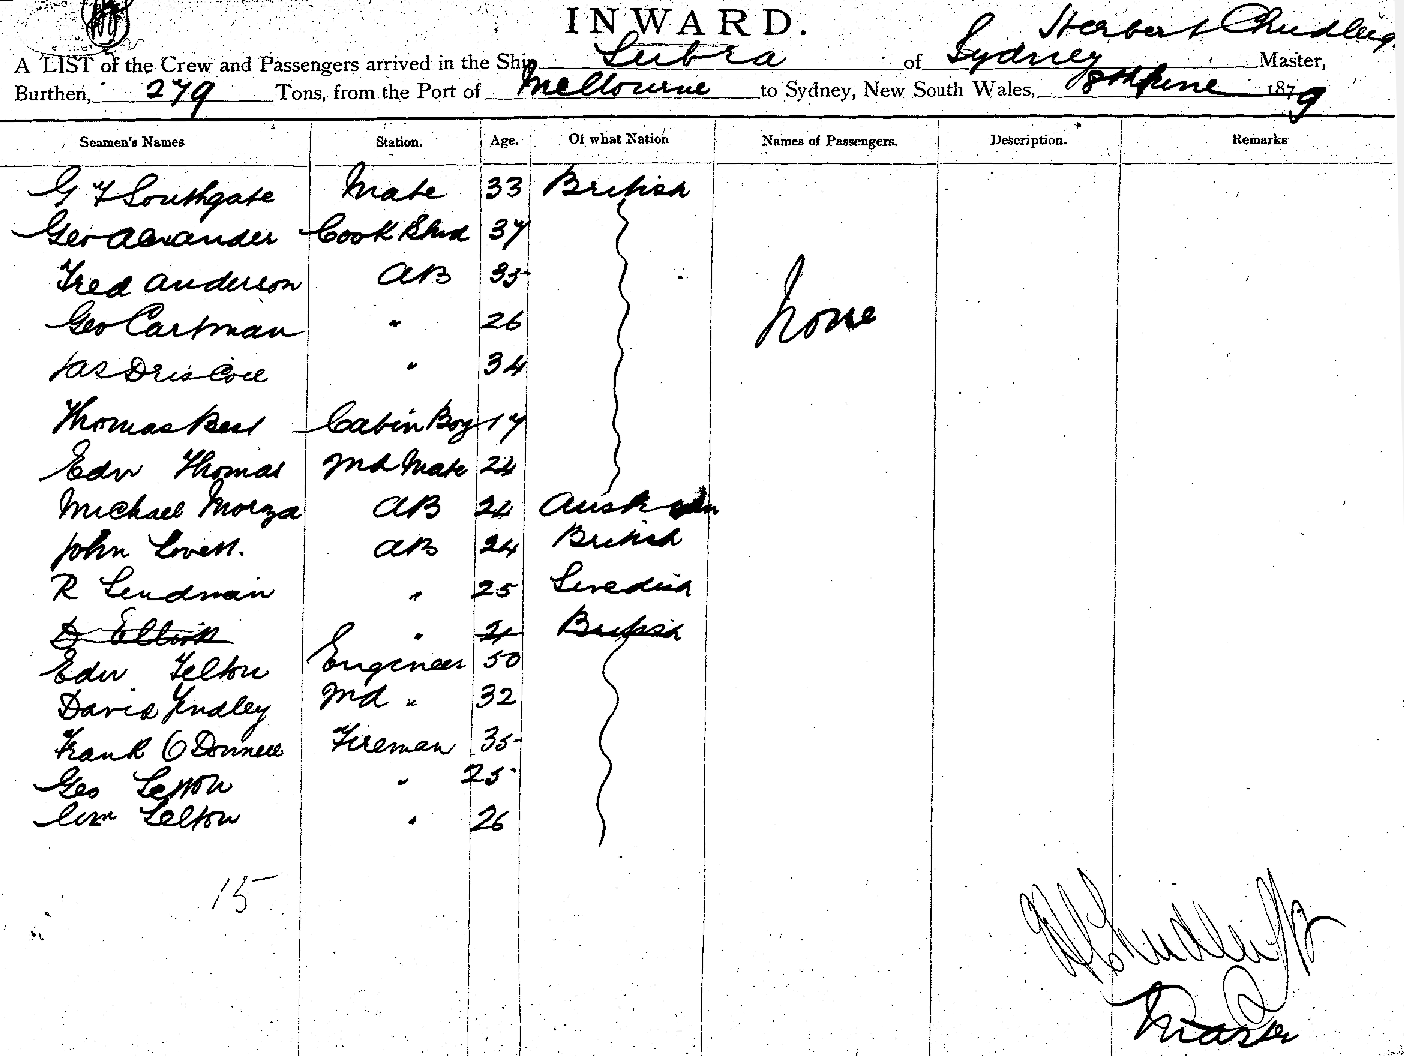 INWARD.
Herbert Chudleigh
A LIST of the Crew and Passengers arrived in the Ship Lubra of Sydney Master,
Burthen, 279 Tons, from the Port of Melbourne to Sydney, New South Wales, June 1879
Seamen's Names Station. Age. Of what Nation Names of Passengers. Description. Remarks
G F Southgate Mate 33 British
Geo Alexander Cook & Stwd 37
Fred Anderson AB 35
None
Geo Cartman " 26
Jas Driscoll " 34
Thomas Best Cabin Boy 17
Edw Thomas 2nd Mate 24
Michael AB 24 Austrian
John Lovett. AB 24 British
R Lendman " 25 Swedish
D Elliott " 21 British
Edw Felton Engineer 50
David Yindley 2nd " 32
Frank O'Donnell Fireman 35
Geo Lelton " 25
Wm Lelton " 26
15
H Chudleigh
Master